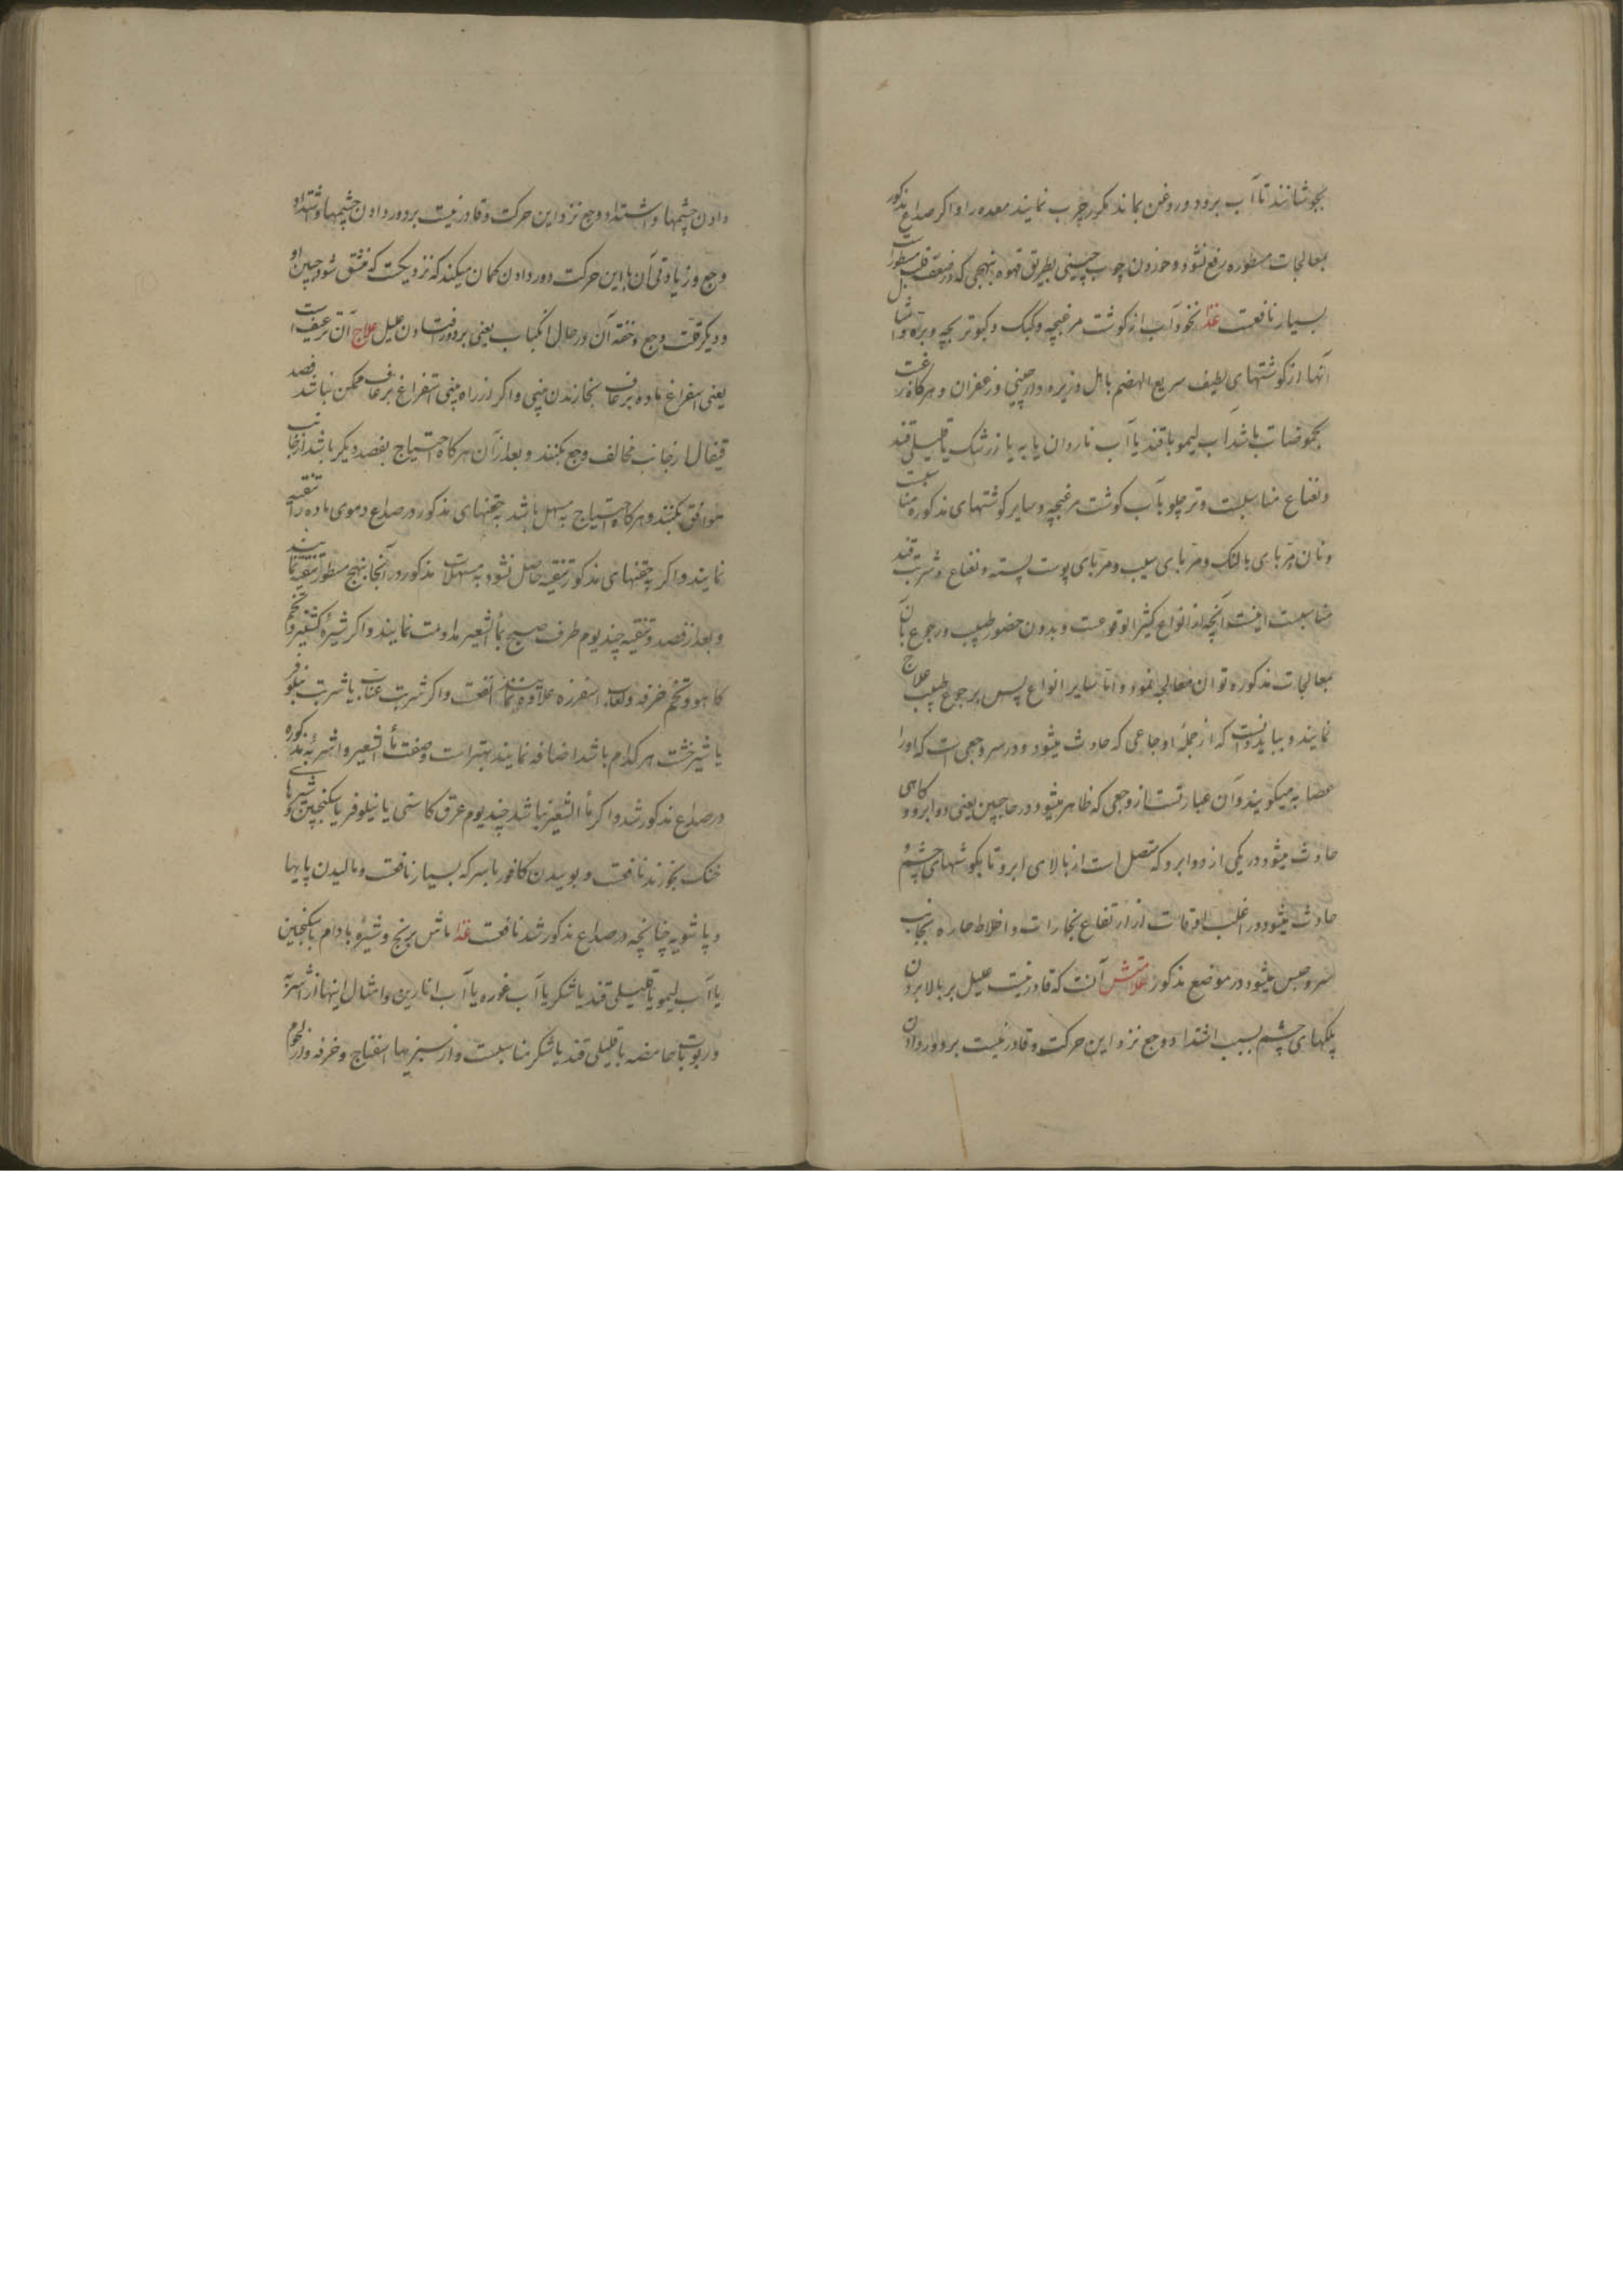 بجوشانند تا آب برود و روغن بماند مکرر چرب نمایند معده را و اکر صداع مذکور
بمعالجات مسطوره رفع نشود خوردن چوب چینی بطریق قهوه بنهجی که در ضعف قلب مسطور است
بسیار نافعست غذا نخود آب از کوشت مرغبچه و کبک و کبوتر بچه و بره و امثال
آنها از کوشتهای لطیف سریع الهضم با هل و زیره و دارچینی و زعفران و هرکاه رغبت
بحموضات باشد آب لیمو با قند یا آب ناردان یا به یا زرشک با قلیلی قند
و نعناع مناسبست و تر چلو با آب کوشت مرغبچه و سایر کوشتهای مذکوره مناسبست
و نان مربای بالنک و مربای سیب و مربای پوست پسته و نعناع و شربت قند
مناسبست اینست آنچه از انواع کثیر الوقوعست و بدون حضور طبیب و رجوع بآن
بمعالجات مذکوره توان معالجه نمود و اما سایر انواع پس برجوع طبیب علاج
نمایند و بباید دانست که از جمله اوجاعی که حادث میشود در سر وجعی است که او را
عصابه میکویند و آن عبارتست از وجعی که ظاهر میشود در حاجبین یعنی دو ابرو و کاهی
حادث میشود در یکی از دو ابرو که متصل است از بالای ابرو تا بکوشهای چشم و
حادث میشود در اغلب اوقات از ارتفاع بخارات و اخلاط حاره بجانب
سر و حبس میشود در موضع مذکور علامتش آنست که قادر نیست علیل بر بالا بردن
پلکهای چشم بسبب اشتداد وجع نزد این حرکت و قادر نیست بر دور دادن
دادن چشمها و اشتداد وجع نزد این حرکت و قادر نیست بر دور دادن چشمها و اشتداد
وجع و زیادتی آن با این حرکت دور دادن کمان میکند که نزدیکست که منشق شود جبین او
و دیکر قلت وجع و خفه آن در حال انکباب یعنی بر رو در افتادن علیل علاج آن ترعیف است
یعنی استفراغ ماده برعاف بخارندن بینی و اکر از راه بینی استفراغ برعاف ممکن نباشد فصد
قیفال از جانب مخالف وجع بکنند و بعد از آن هرکاه احتیاج بفصد دیکر باشد از جانب
موافق بکنند و هرکاه احتیاج به مسهل باشد به حقنهای مذکور در صداع دموی ماده را تنقیه
نمایند و اکر به حقنهای مذکور تنقیه حاصل نشود به مسهلات مذکور در آنجا بنهج مسطور تنقیه نمایند
و بعد از فصد و تنقیه چند یوم طرف صبح بماء الشعیر مداومت نمایند و اکر شیره کشنیز و تخم
کاهو و تخم خرفه و لعاب اسفرزه علاوه نمایند انفعست و اکر شربت عناب یا شربت نیلوفر
یا شیرخشت هرکدام باشد اضافه نمایند بهتر است و صفت ماء الشعیر و اشربه مذکوره
در صداع مذکور شد و اکر ماء الشعیر نباشد چند یوم عرق کاسنی یا نیلوفر با سکنجبین و شیرهای
خنک بخورند نافعست و بوییدن کافور با سرکه بسیار نافعست و مالیدن پایها
و پاشویه چنانچه در صداع مذکور شد نافعست غذا ماش برنج و شیره بادام با سکنجبین
یا آب لیمو با قلیلی قند یا شکر یا آب غوره یا آب انارین و امثال اینها از اشربه
و ربوبات حامضه با قلیلی قند یا شکر مناسبست و از سبزیها اسفناج و خرفه و از لحوم